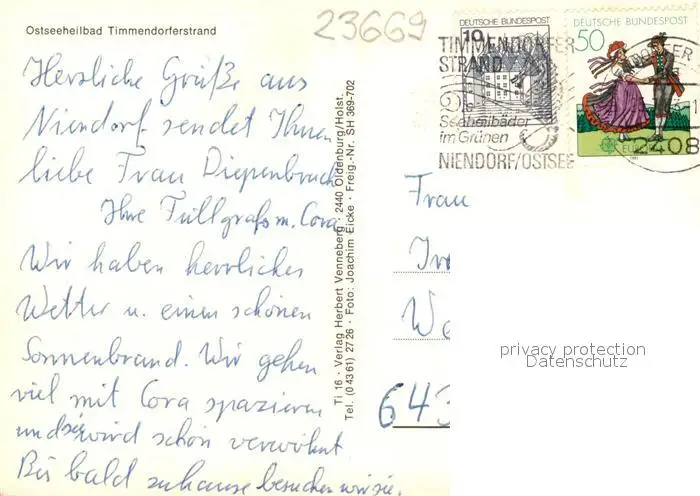 Ostseeheilbad Timmendorferstrand
23669
Herzliche Grüße aus
Niendorf sendet Ihnen
liebe Frau Diepenbruch
Ihre Füllgrafs m. Cora
Wir haben herrliches
Wetter u. einen schönen
Sonnenbrand. Wir gehen
viel mit Cora spazieren
und sie wird schön verwöhnt
Bis bald zuhause besuchen wir sie.
Ti 16 · Verlag Herbert Venneberg · 2440 Oldenburg/Holst.
Tel. (0 43 61) 27 26 · Foto: Joachim Eicke · Freig.-Nr. SH 369-702
DEUTSCHE BUNDESPOST
10
DEUTSCHE BUNDESPOST
50
EUROPA
TIMMENDORFER
STRAND
Seeheilbäder
im Grünen
NIENDORF/OSTSEE
2408
Frau
643
privacy protection
Datenschutz